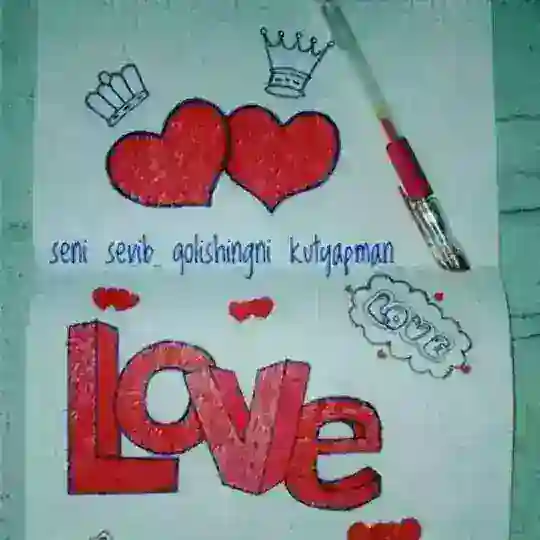 seni sevib qolishingni kutyapman
LOVE
Love